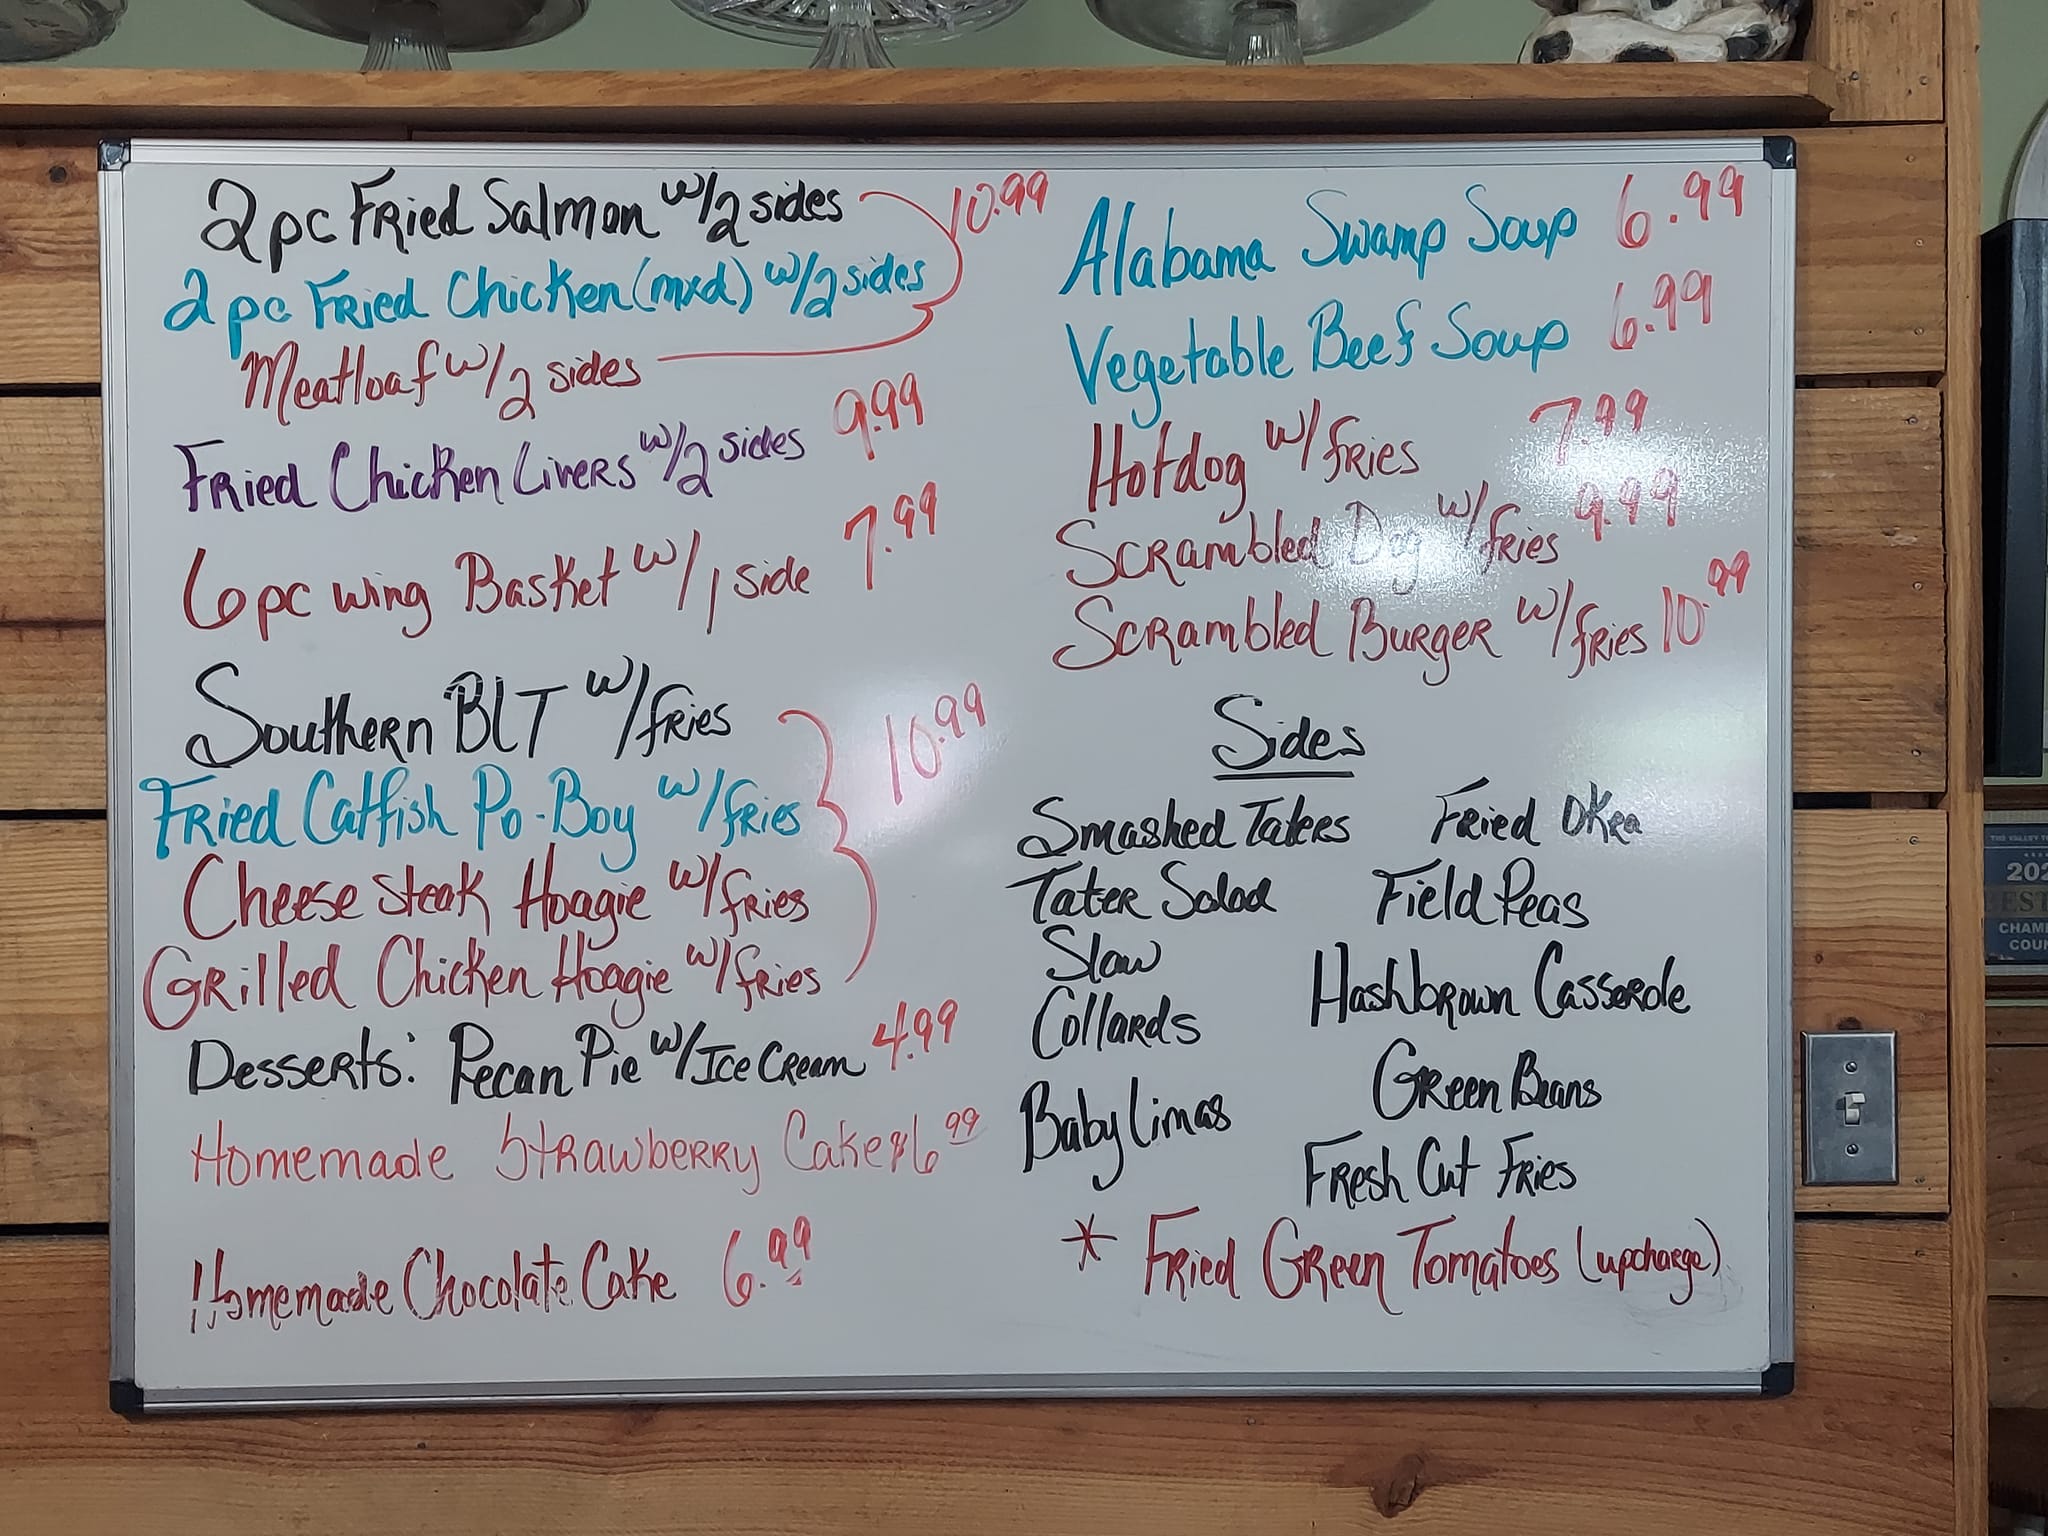 2pc Fried Salmon w/2 sides 10.99
2pc Fried Chicken (mxd) w/2 sides
Meatloaf w/2 sides
Fried Chicken Livers w/2 sides 9.99
6pc wing Basket w/1 side 7.99
Southern BLT w/fries 10.99
Fried Catfish Po-Boy w/fries
Cheese Steak Hoagie w/fries
Grilled Chicken Hoagie w/fries
Desserts: Pecan Pie w/Ice Cream 4.99
Homemade Strawberry Cake $6.99
Homemade Chocolate Cake 6.99
Alabama Swamp Soup 6.99
Vegetable Beef Soup 6.99
Hotdog w/fries 7.99
Scrambled Dog w/fries 9.99
Scrambled Burger w/fries 10.99
Sides
Smashed Taters
Tater Salad
Slaw
Collards
Baby Limas
Fried Okra
Field Peas
Hashbrown Casserole
Green Beans
Fresh Cut Fries
* Fried Green Tomatoes (upcharge)